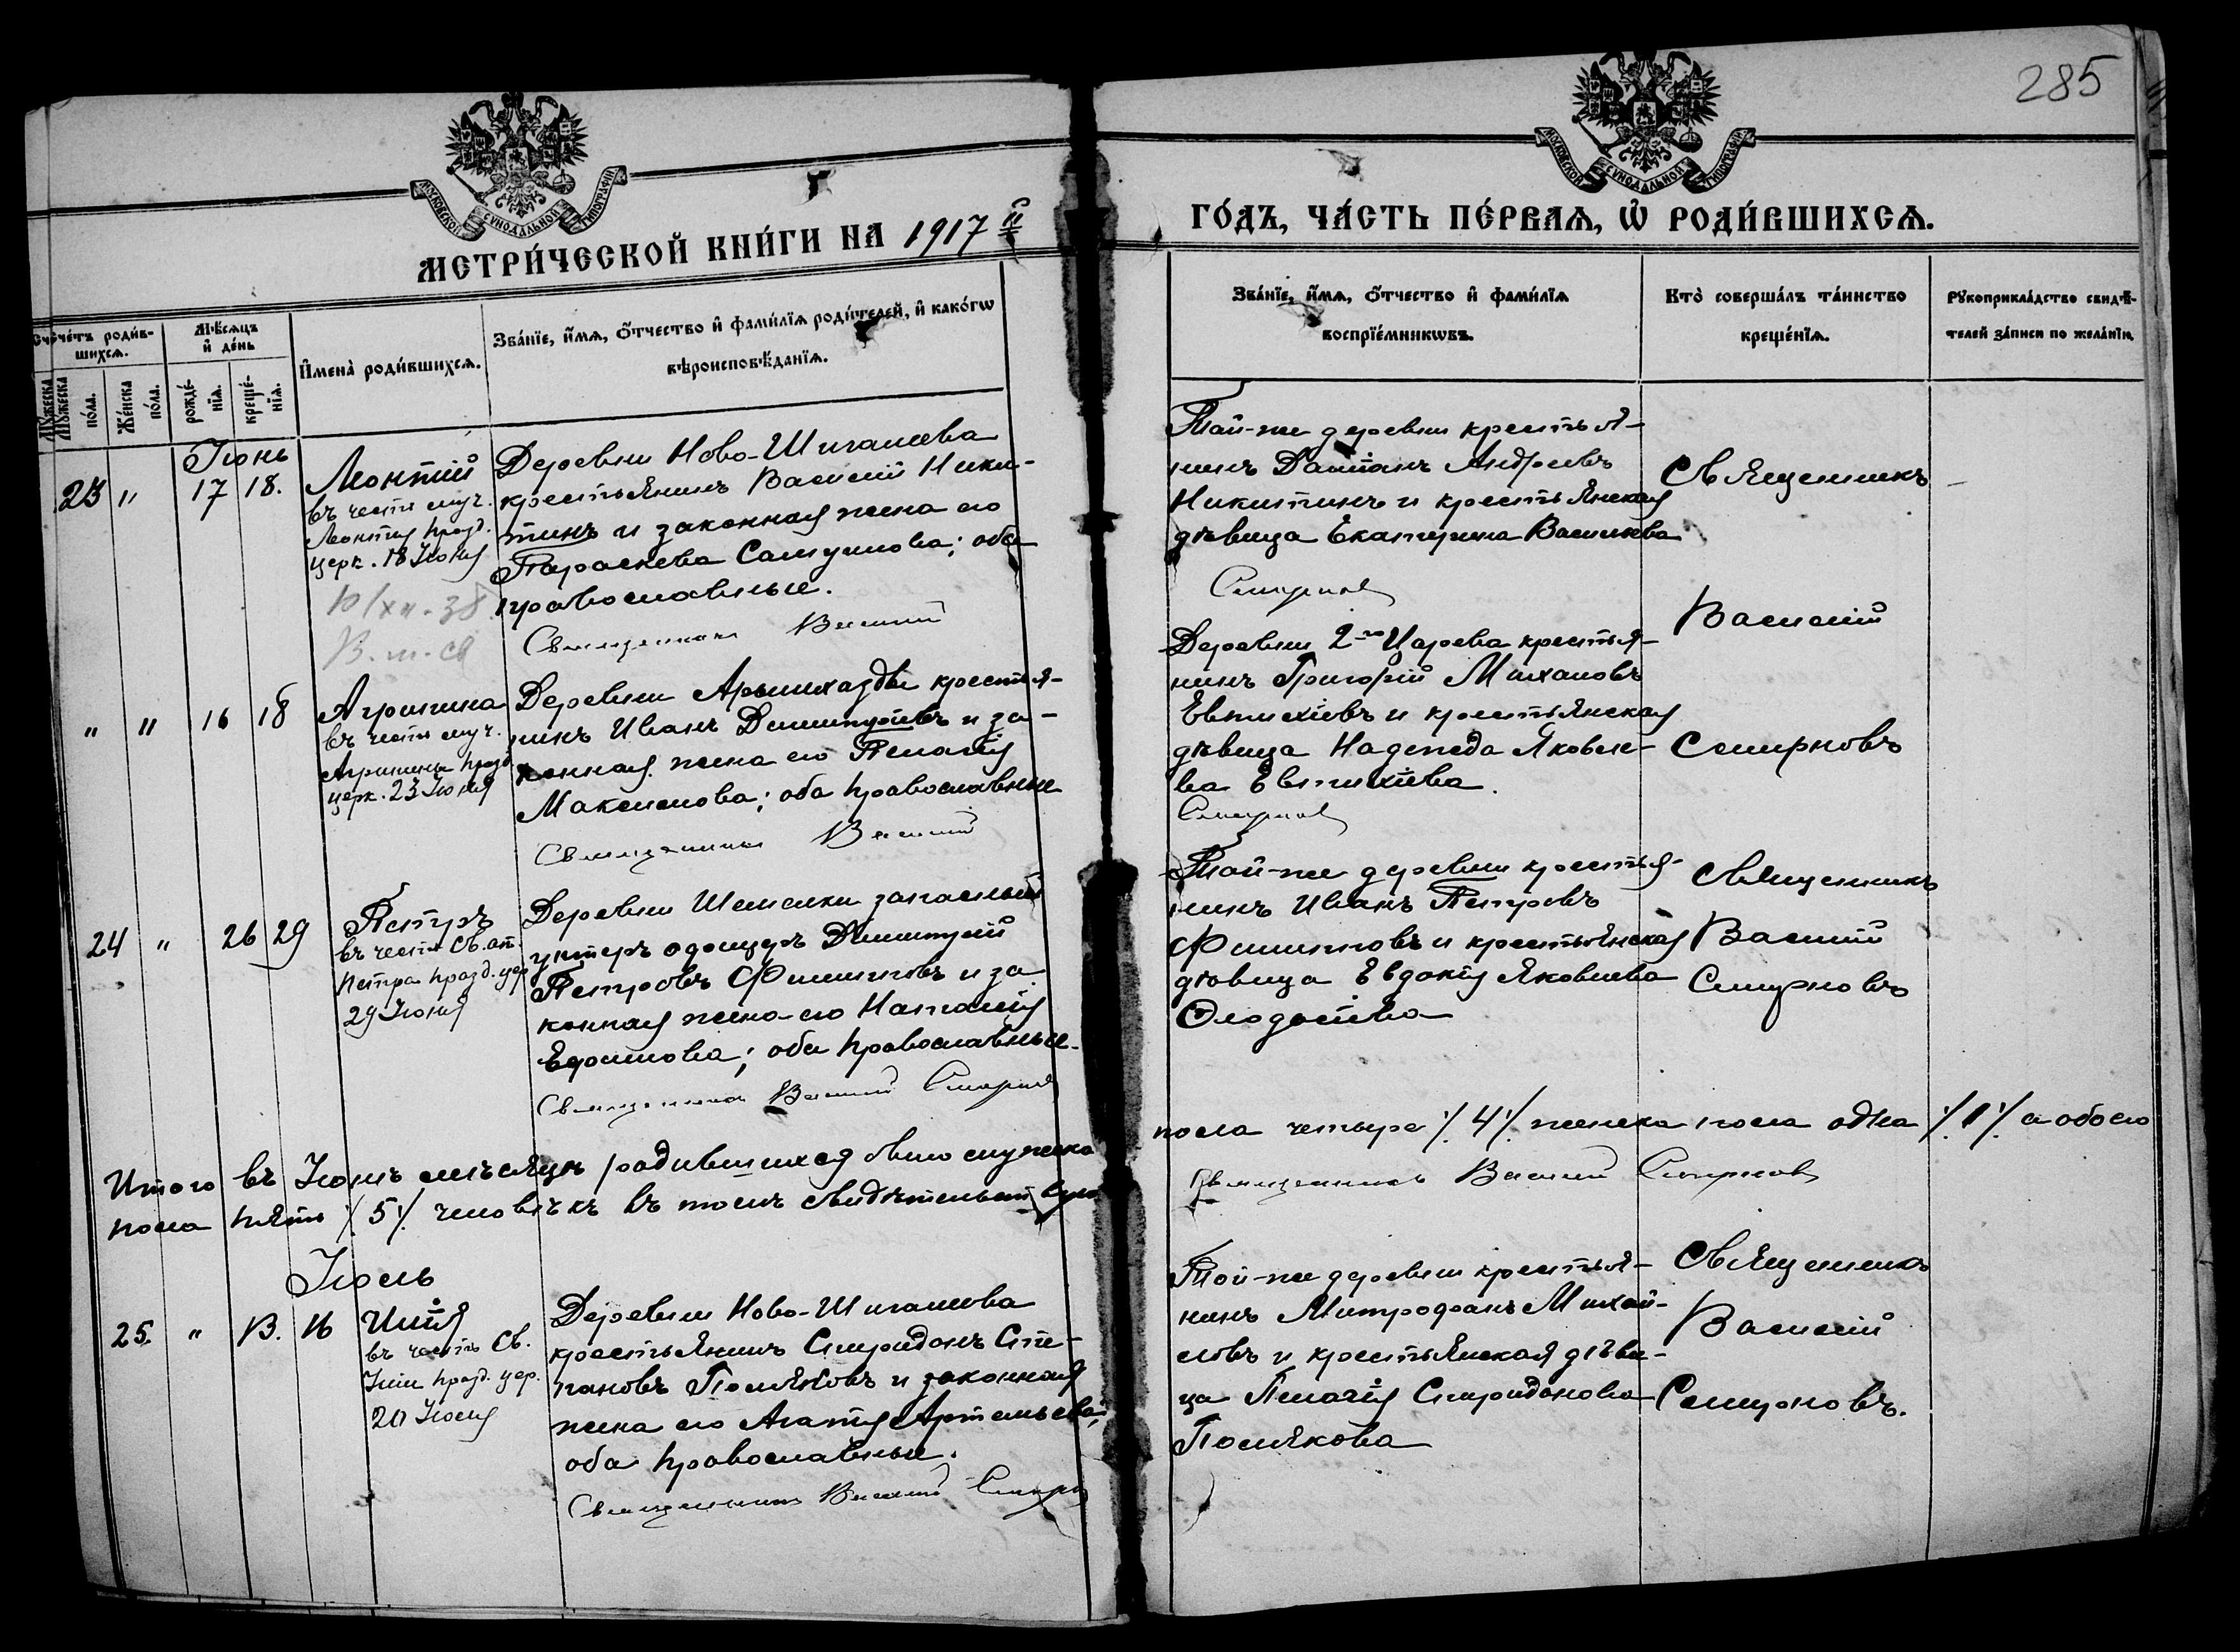 285
МОСКОВСКОЙ СѴНОДАЛЬНОЙ ТИПОГРАФІИ
МОСКОВСКОЙ СѴНОДАЛЬНОЙ ТИПОГРАФІИ
МЕТРИ́ЧЕСКОЙ КНИ́ГИ НА 1917 й
ГО́ДЪ, ЧА́СТЬ ПЕ́РВАѦ, Ѡ҆ РОДИ́ВШИХСѦ.
Сче́тъ роди́в-
шихсѧ.
Мꙋ́жеска
по́ла.
Же́нска
по́ла.
Мѣ́сѧцъ
и҆ де́нь
рожде́-
нїѧ.
креще́-
нїѧ.
И҆мена̀ роди́вшихсѧ.
Зва́нїе, и҆́мѧ, ѻ҆́тчество и҆ фами́лїѧ роди́телей, и҆ како́гѡ
вѣроисповѣ́данїѧ.
Зва́нїе, и҆́мѧ, ѻ҆́тчество и҆ фами́лїѧ
воспрїе́мникѡвъ.
Кто̀ соверша́лъ та́инство
креще́нїѧ.
Рꙋкоприкла́дство свидѣ́-
телей за́писи по жела́нїю.
Іюнь
23 " 17 18.
Леонтій
въ честь муч.
Леонтія празд.
церк. 18 Іюня
Деревни Ново-Шигалева
крестьянинъ Василій Ники-
тинъ и законная жена его
Параскева Самуилова; оба
православные.
Священникъ Василій
Той-же деревни крестья-
нинъ Даміанъ Андреевъ
Никитинъ и крестьянская
дѣвица Екатерина Васильева
Смирновъ
Священникъ
Василій
Смирновъ
" " 16 18
Агрипина
въ честь муч.
Агрипины празд.
церк. 23 Іюня
Деревни крестья-
нинъ Иванъ Димитріевъ и за-
конная жена его Пелагія
Максимова; оба православные
Священникъ Василій
Деревни 2-го Царева крестья-
нинъ Григорій Михаиловъ
Евтихіевъ и крестьянская
дѣвица Надежда Яковле-
ва Евтихіева.
Смирновъ
24 " 26 29
Петръ
въ честь Св. ап.
Петра празд. цер
29 Іюня
Деревни запасный
унтеръ офицеръ Димитрій
Петровъ Филипповъ и за
конная жена его Наталія
Ефимова; оба православные.
Священникъ Василій Смирновъ
Той-же деревни крестья-
нинъ Иванъ Петровъ
Филипповъ и крестьянская
дѣвица Евдокія Яковлева
Священникъ
Василій
Смирновъ
Итого въ Іюнѣ мѣсяцѣ родившихся было мужска
пола четыре /.4/. женска пола одна /.1/. а обоего
пола пять /.5/. человѣкъ въ томъ свидѣтельствуемъ
Священникъ Василій Смирновъ
Іюль
25. " 13. 16
Илія
въ честь Св.
Иліи празд. цер.
20 Іюля
Деревни Ново-Шигалева
крестьянинъ Спиридонъ Сте-
пановъ Поляковъ и законная
жена его Агапія Артемьева;
оба православные.
Священникъ Василій Смирновъ
Той-же деревни крестья-
нинъ Митрофанъ Михай-
ловъ и крестьянская дѣви-
ца Пелагія Спиридонова
Полякова
Священникъ
Василій
Смирновъ.